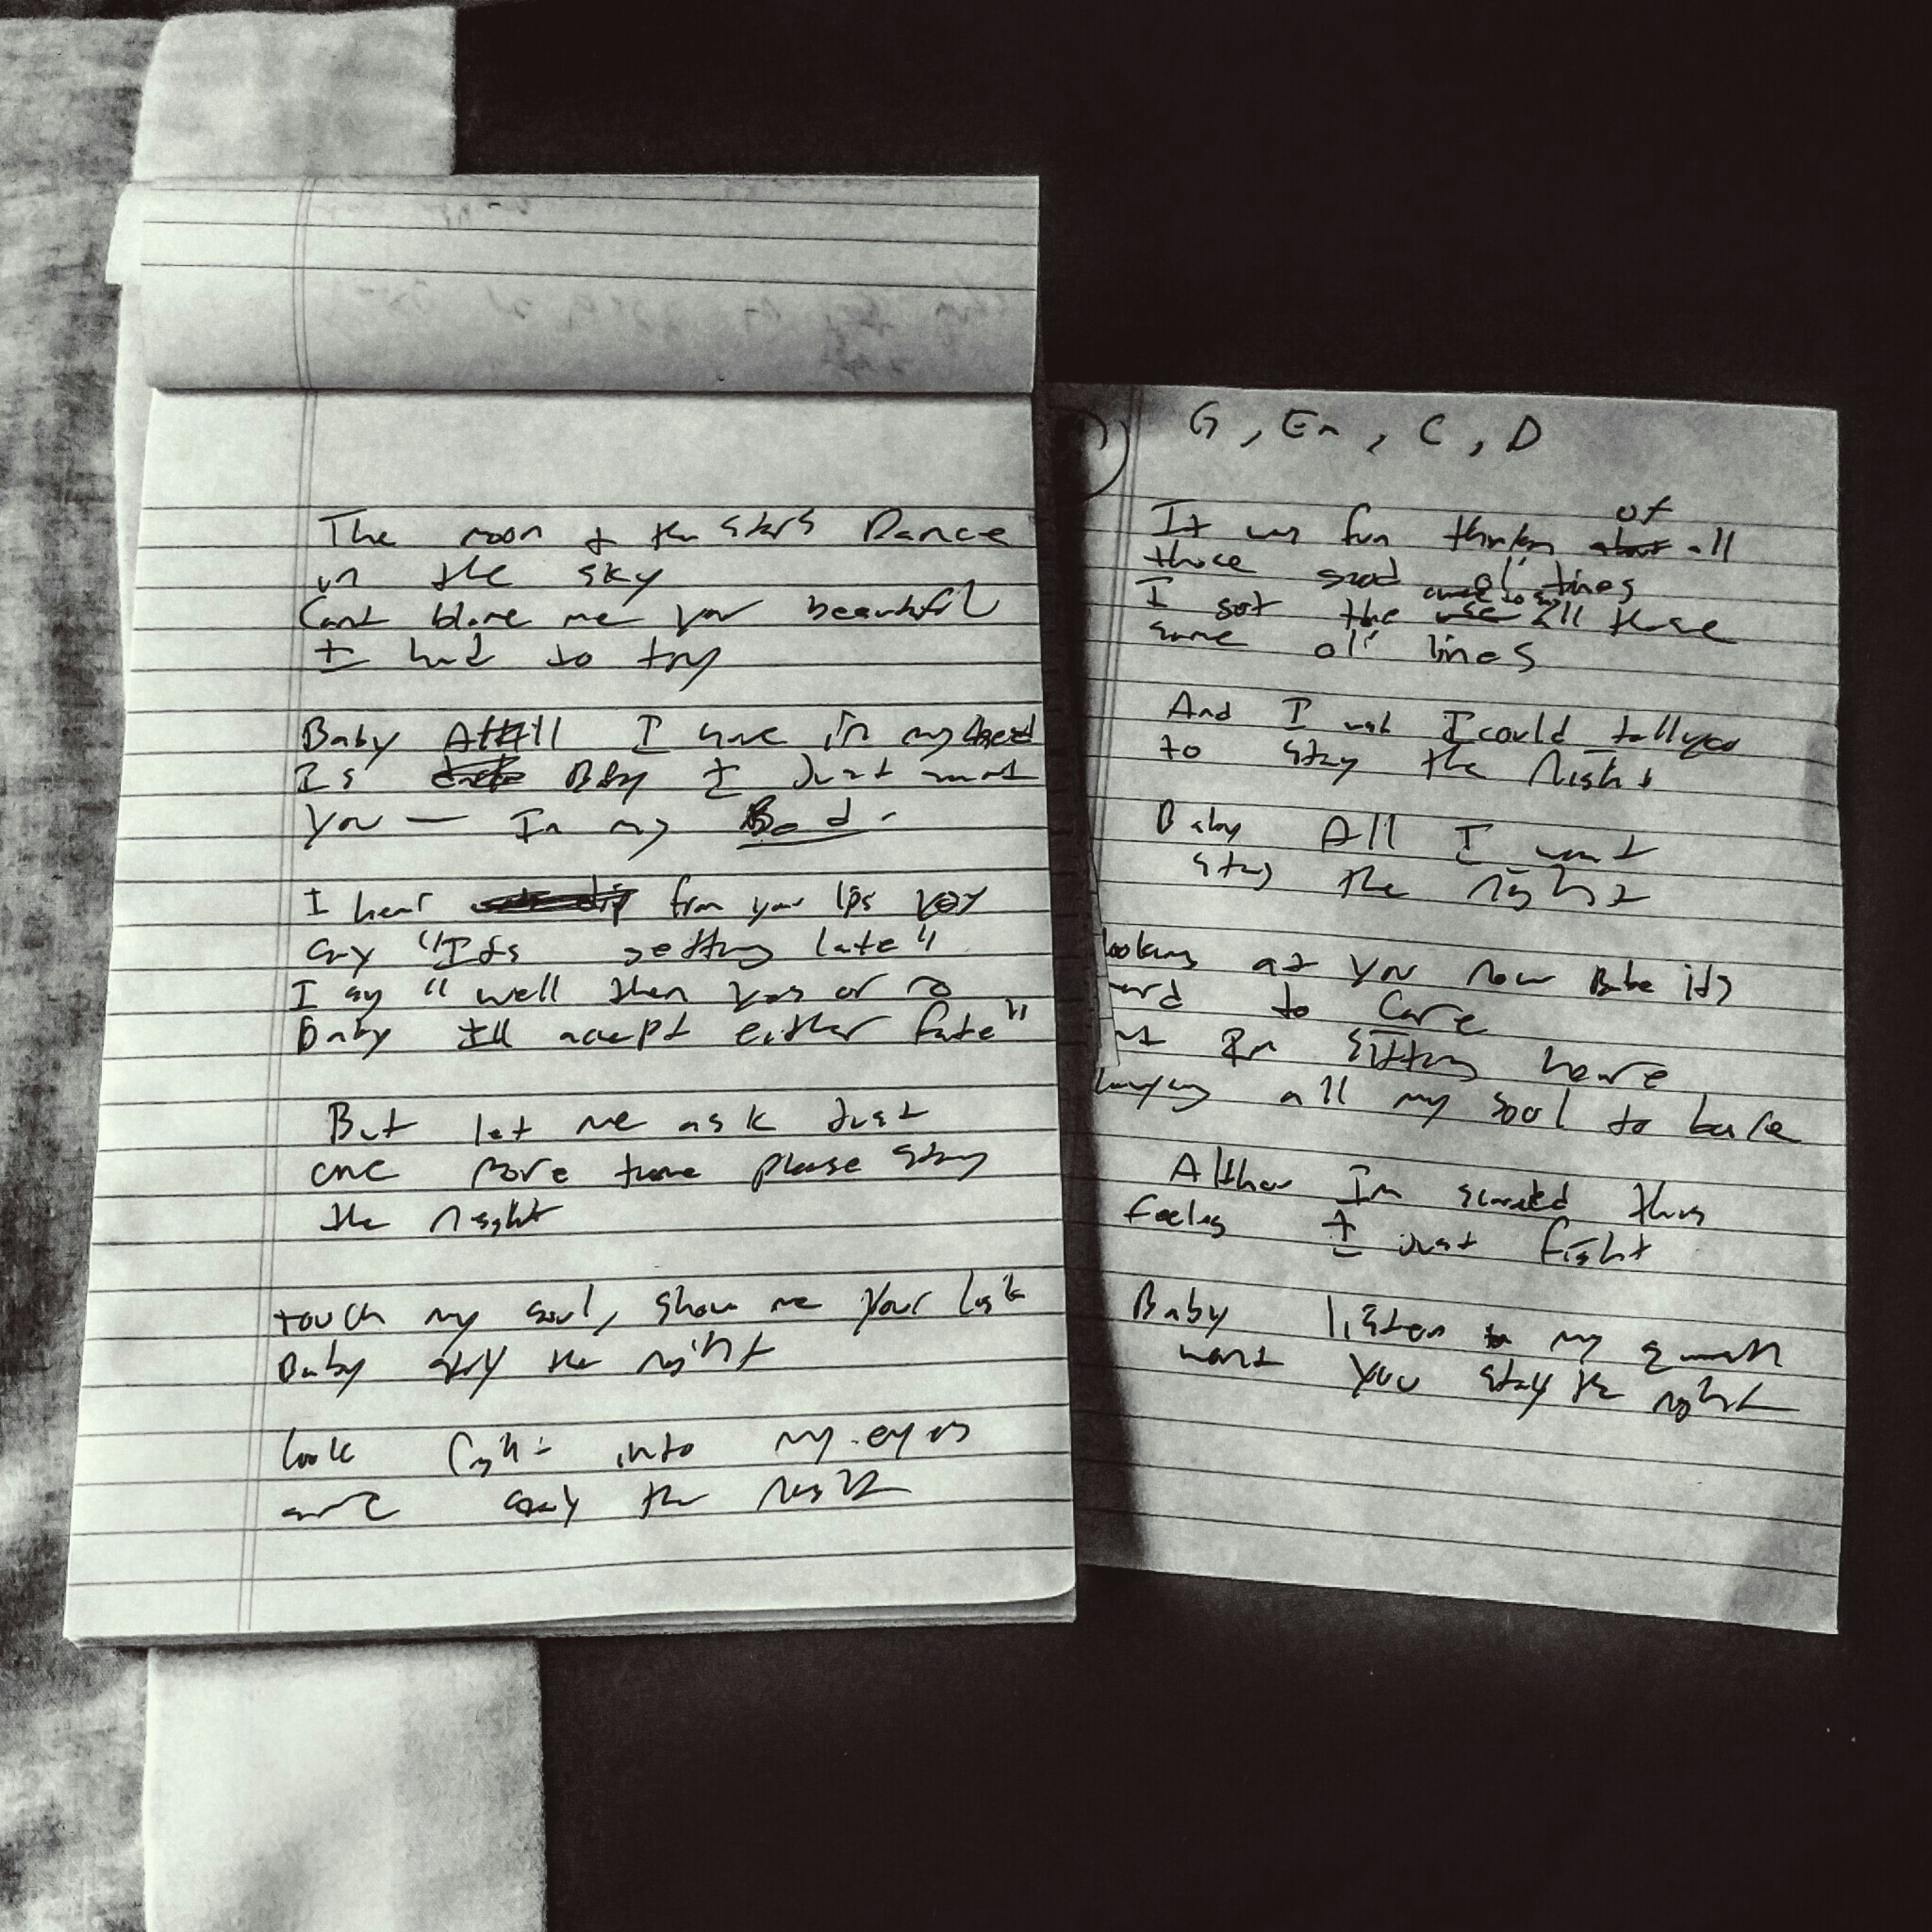 The moon & the stars Dance
in the sky
Cant blame me your beautiful
I had to try
Baby All I have in my head
Is Baby I Just want
you — In my Bed.
I hear from your lips you
say "Its getting late"
I say "well then yes or no
Baby Ill accept either fate"
But let me ask Just
one more time please stay
the night
touch my soul, show me your
Baby stay the night
look right into my eyes
and stay the night
G, Em, C, D
It was fun thinking of all
those good ol' times
I got the all these
same ol' lines
And I wish I could tell you
to stay the night
Baby All I want
stay the night
looking at you now Babe its
to care
Im sitting here
all my soul to bare
Altho Im scared this
feeling I just fight
Baby listen to my
want you stay the night